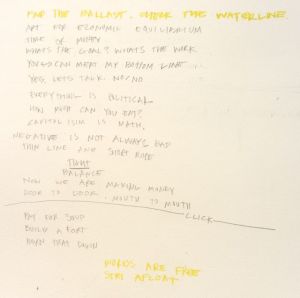 THE BALLAST. CHECK THE WATERLINE.
ART FOR ECONOMIC EQUILIBRIUM
TIME OR MONEY
WHATS THE GOAL? WHATS THE WORK
YOU CAN MEAT MY BOTTOM LINE
YES, LETS TALK. NO/NO
EVERYTHING IS POLITICAL
HOW MUCH CAN YOU EAT?
CAPITALISM IS MATH.
NEGATIVE IS NOT ALWAYS BAD
THIN LINE AND SHORT ROPE
TIGHT
BALANCE
NOW WE ARE MAKING MONEY
DOOR TO DOOR. MOUTH TO MOUTH
CLICK
PAY FOR SOUP
BUILD A FORT
BURN THAT DOWN
WORDS ARE FREE
STAY AFLOAT